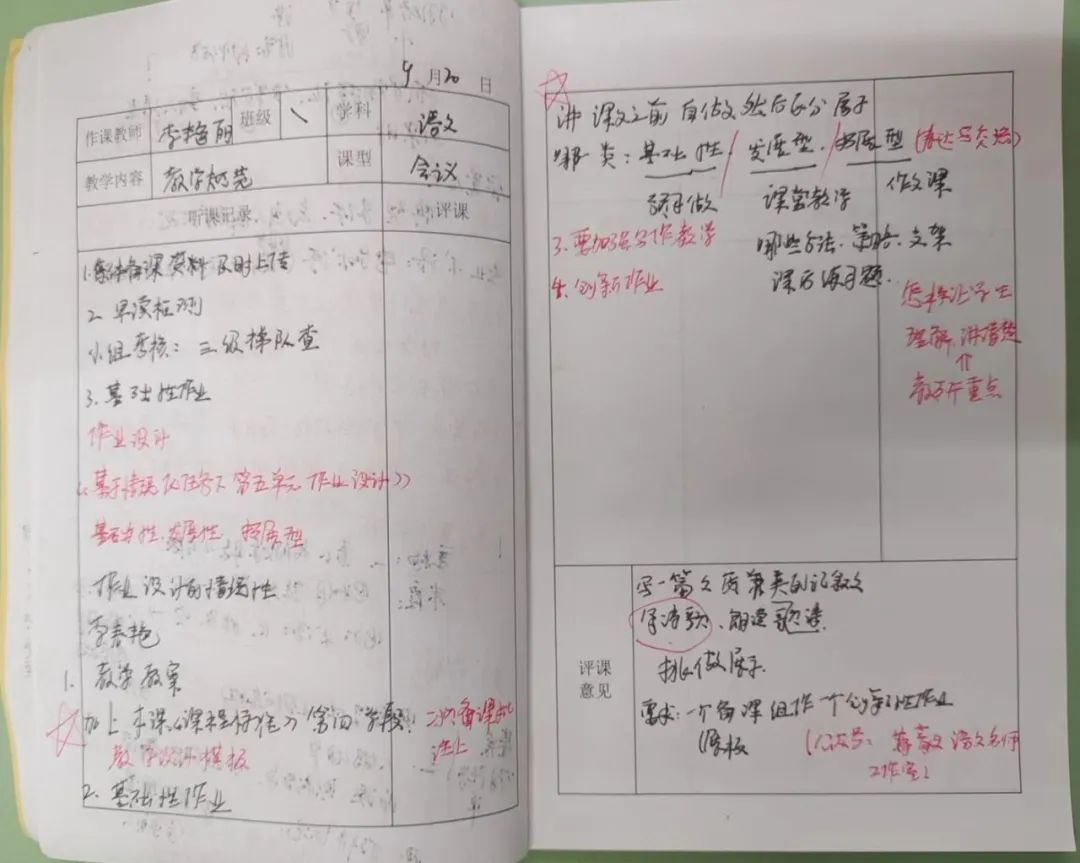 9月20日
作课教师 李艳丽 班级 \ 学科 语文
教学内容 教学规范 课型 会议
听课记录 评课
1.集体备课资料及时上传
2.早读检测
小组考核：三级梯队查
3.基础性作业
作业设计
《基于情境化任务下第五单元作业设计》
基础性、发展性、拓展型
作业设计的情境性
李春艳
1.教学教案
加上本课《课程标准》 学段! 二次备课
教学设计模板
2.基础性作业
讲课文之前自做,然后区分属于
哪类：基础性/发展型/拓展型(表达与交流)
预习做 课堂教学 作文课
3.要加强写作教学 哪些方法、策略、支架
4.创新作业 课后练习题
怎样让学生
理解,讲清楚
⇑
教研重点
评课意见
写一篇文质兼美的记叙文
写诗歌、朗读歌谣
挑做展示
要求:一个备课组作一个创新性作业
模板 (公众号: 语文名师
工作室)